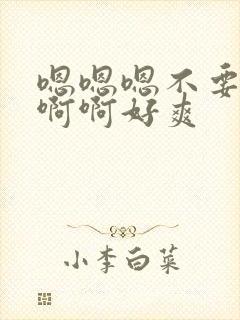 嗯嗯嗯不要
啊啊好爽
小李白菜